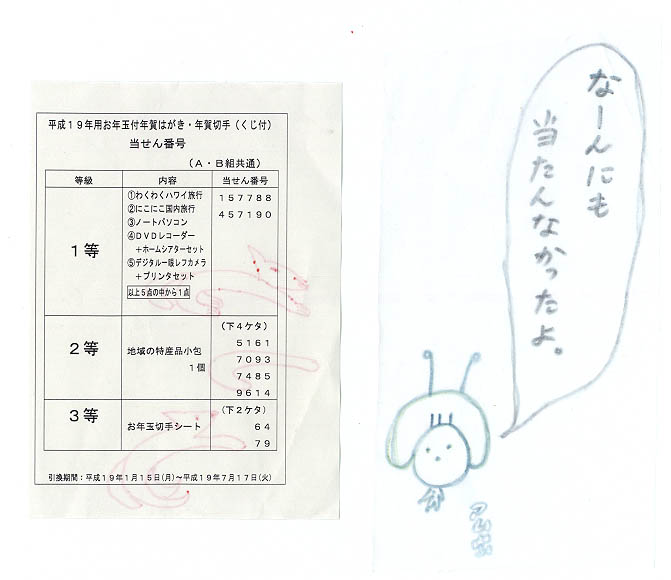 平成19年用お年玉付年賀はがき・年賀切手(くじ付)
当せん番号
(A・B組共通)
等級 内容 当せん番号
1等
①わくわくハワイ旅行
②にこにこ国内旅行
③ノートパソコン
④DVDレコーダー
+ホームシアターセット
⑤デジタル一眼レフカメラ
+プリンタセット
以上5点の中から1点
157788
457190
2等
地域の特産品小包
1個
(下4ケタ)
5161
7093
7485
9614
3等
お年玉切手シート
(下2ケタ)
64
79
引換期間:平成19年1月15日(月)~平成19年7月17日(火)
なーんにも
当たんなかったよ。